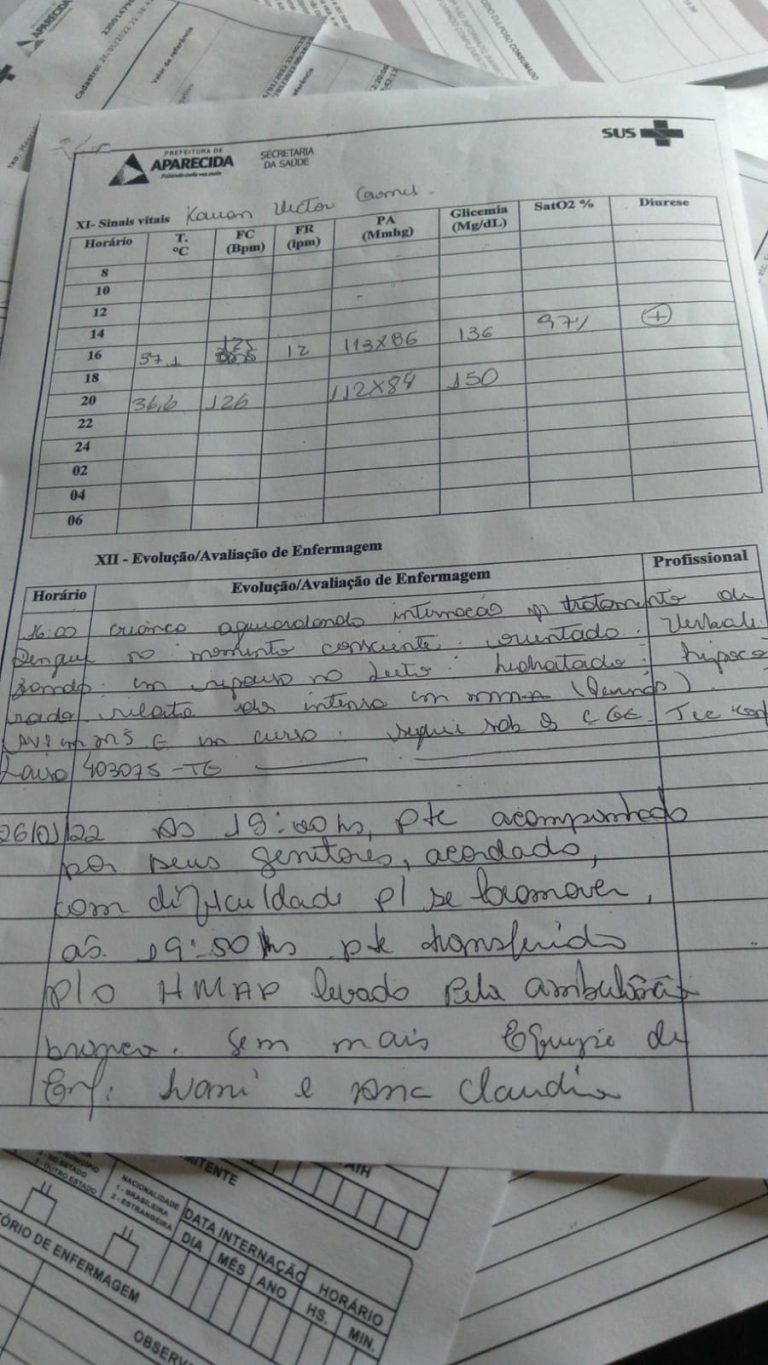 Cadastro: 26/01/2022 22:
Valor de referência
APARECIDA
SUS
PREFEITURA DE
APARECIDA
SECRETARIA
DA SAÚDE
XI- Sinais vitais Kauan Victor
Horário T. ºC FC (Bpm) FR (ipm) PA (Mmhg) Glicemia (Mg/dL) SatO2 % Diurese
8
10
12
14
16 37,1 125 12 113X86 136 97% +
18
20 36,6 126 112X84 150
22
24
02
04
06
XII - Evolução/Avaliação de Enfermagem
Horário Evolução/Avaliação de Enfermagem Profissional
16:00 criança aguardando internação p/ tratamento de
Dengue no momento consciente. orientado. Verbali
zando. em repouso no leito. hidratado. hipoco
rado relata dor intensa em
em curso. segue sob os C GE. Tec
Lauro 403075-TE
26/01/22 As 19:00hs, pte acompanhado
por seus genitores, acordado,
com dificuldade p/ se locomover,
ás 19:50hs pte transferido
p/o HMAP levado pela ambulância
branca. Sem mais Equipe de
Enf. Ivani e Ana Claudia
NACIONALIDADE
1 - BRASILEIRA
2 - ESTRANGEIRA
DATA INTERNAÇÃO HORÁRIO
DIA MÊS ANO HS. MIN.
2 - OUTRO ESTADO
ÓRIO DE ENFERMAGEM
OBSERV